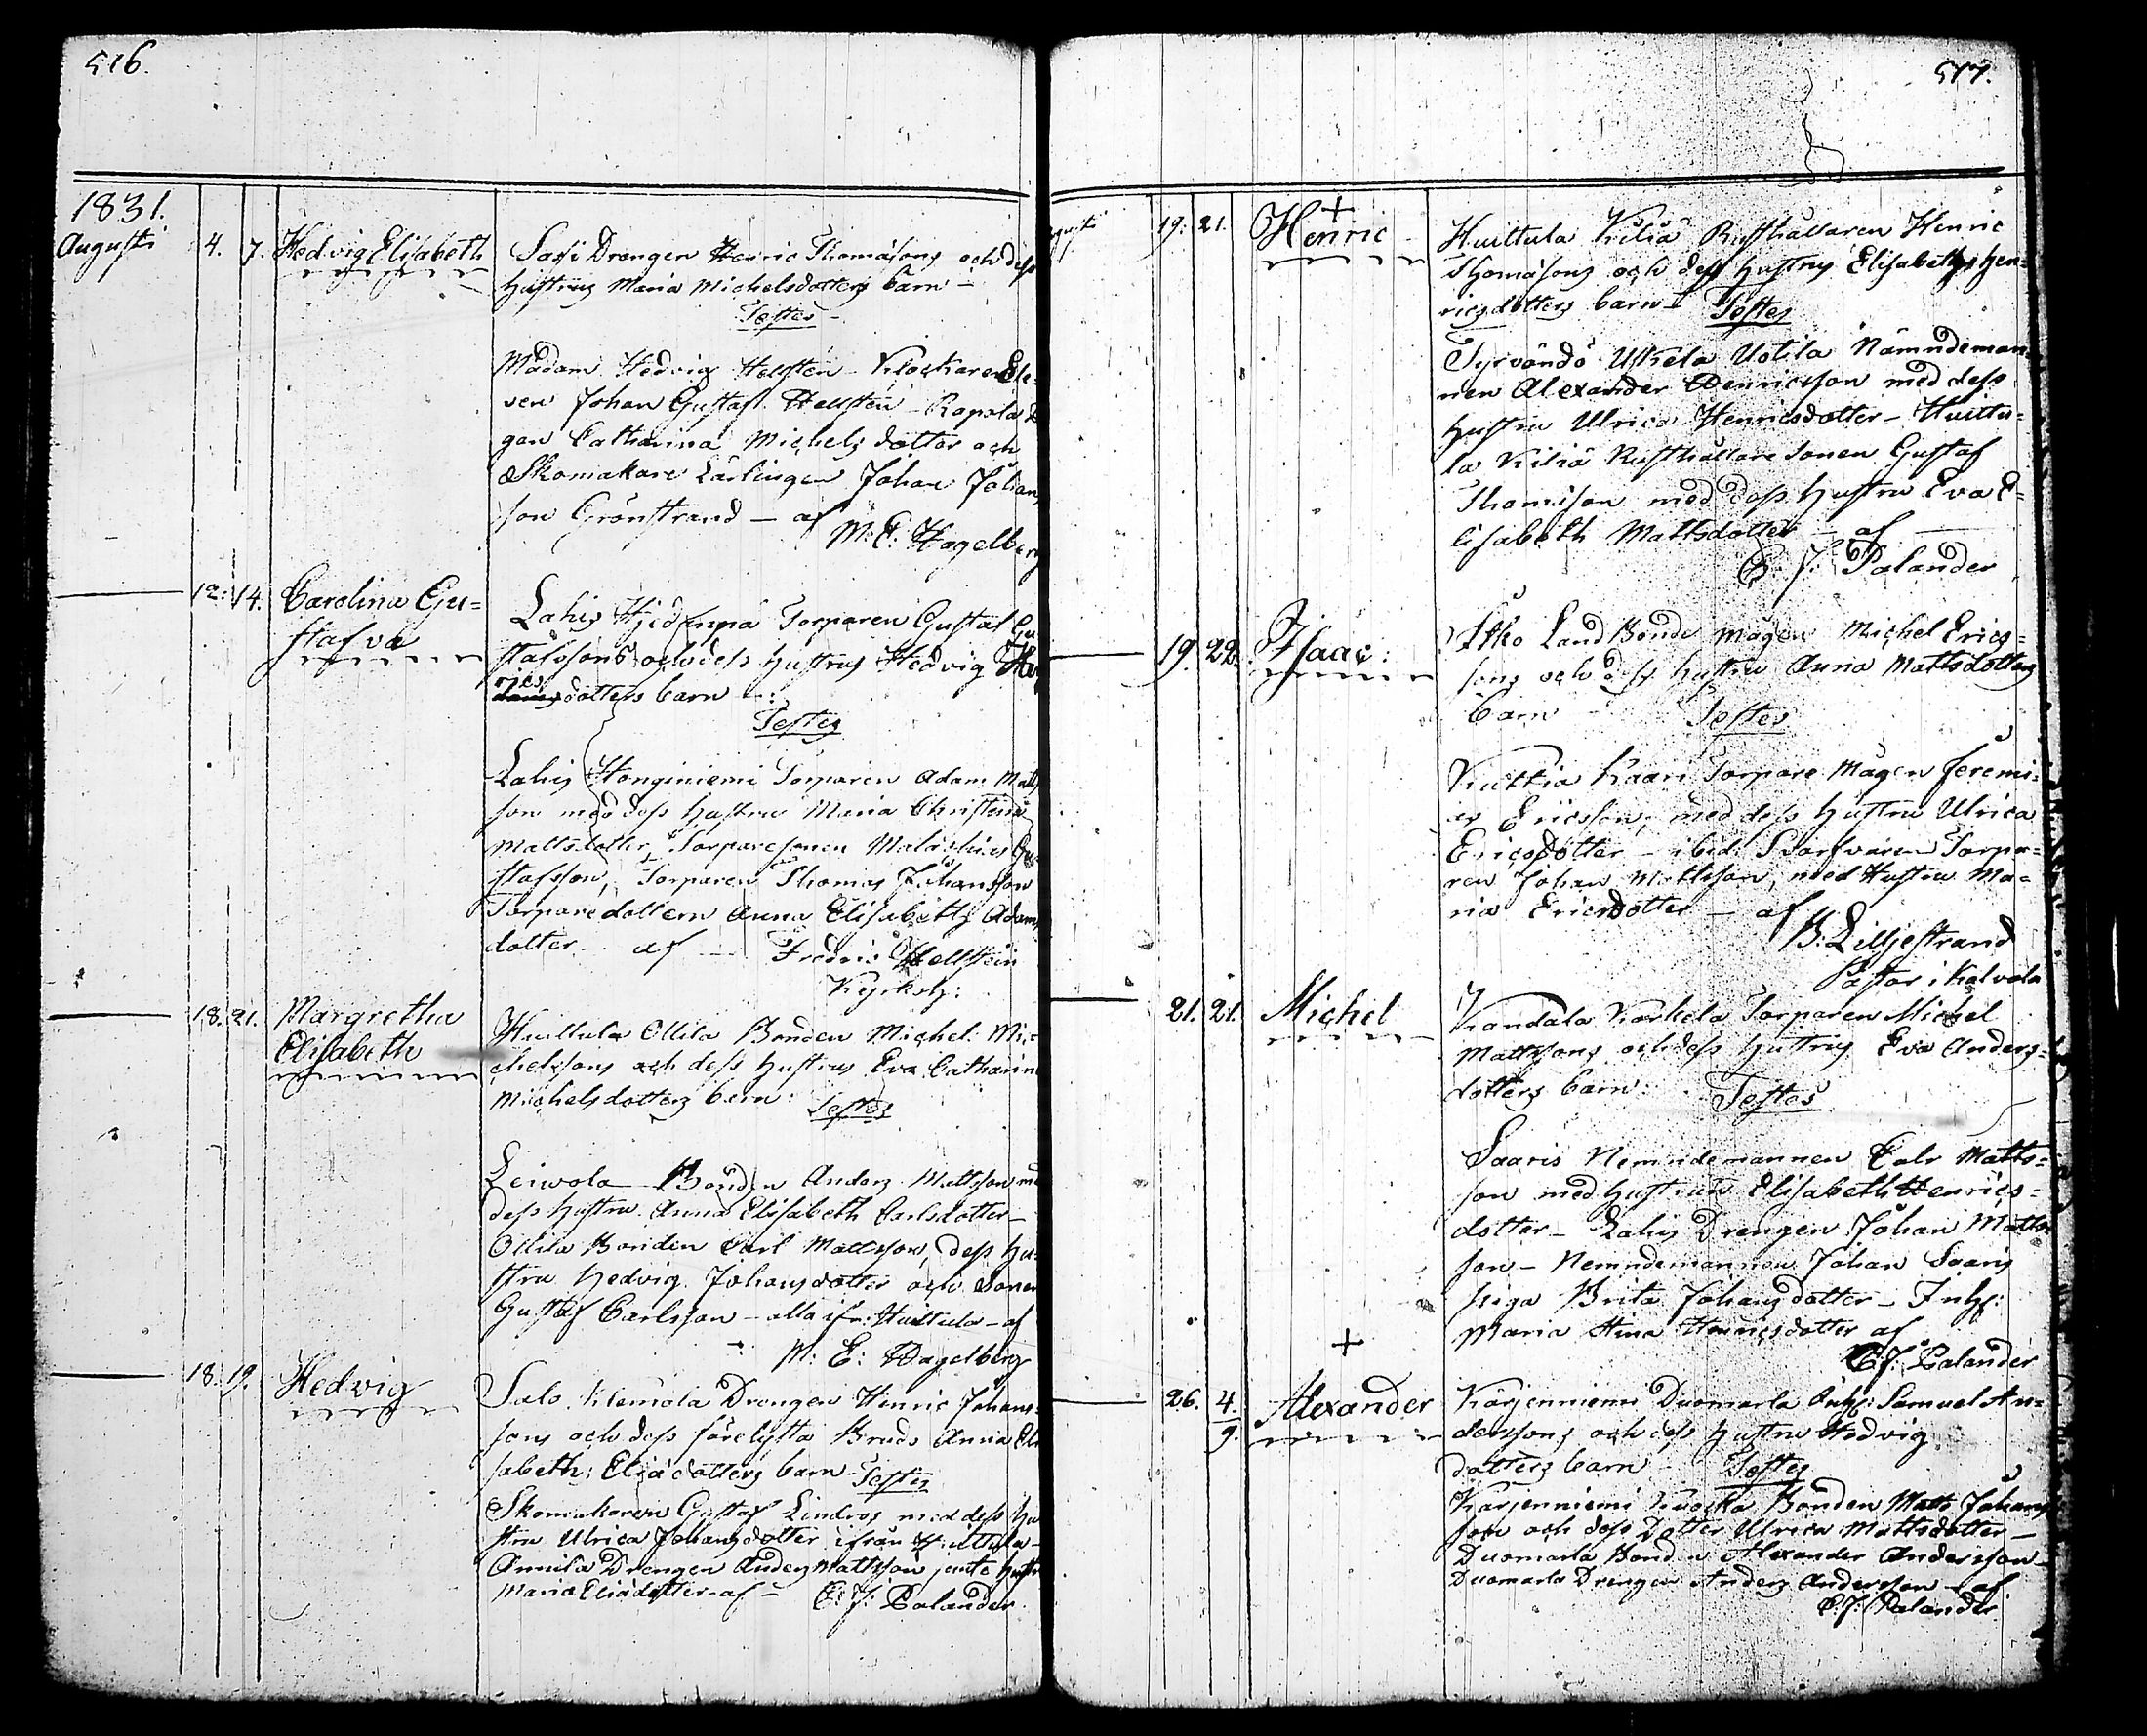 516.
1831.
Augusti 4. 7. Hedvig Elisabeth
Sassi Drengen Henric Thomasons och dess
hustrus Maria Michelsdotters barn
Testes
Madam Hedvig Hellsten Klockare Ele-
ven Johan Gustaf Hellsten Rapola
gan Catharina Michels dotter och
Skomakare Lärlingen Johan Johan
son Grönstrand — af
M: E: Hagelberg
12. 14. Carolina Gu=
stafva
Lahis Torparen Gustaf Gu
stafssons och dess hustrus Hedvig
rics
dotters barn
Testes
Lahis Honginiemi Torparen Adam Matts
son med dess hustru Maria Christina
Mattsdotter, Torparesonen Malachias Gu
stafsson, Torparen Thomas Johansson
Torparedottern Anna Elisabeth Adams
dotter. af — Fredric Hellsten
18. 21. Margretha
Elisabeth
Huittula Ollila Bonden Michel Mi=
chelssons och dess hustrus Eva Catharina
Michelsdotters barn: Testes
Leiwola Bonden Anders Mattsson
dess hustru Anna Elisabeth Carlsdotter —
Ollila Bonden Carl Mattsson, dess hu=
stru Hedvig Johansdotter och Sonen
Gustaf Carlsson — alla ifr: Huittula — af
M: E: Hagelberg
18. 19. Hedvig
Salo Klemola Drengen Henric Johans=
sons och dess förelysta Bruds Anna Eli
sabeth Eliædotters barn Testes
Skomakaren Gustaf Lindros med dess hu
stru Ulrica Johansdotter ifrån Huittula —
Annila Drengen Anders Mattsson jemte hustr
Maria Eliædotter af — C: J: Palander
517.
19. 21. Henric
Huittula Kiliä Rusthållaren Henric
Thomasons och dess hustrus Elisabeth Hen=
ricsdotters barn Testes
Tyrvändö Uskela Uotila Nämndeman
nen Alexander Henricsson med dess
hustru Ulrica Henricsdotter — Huittu=
la Kiliä Rusthållare Sonen Gustaf
Thomsson med dess hustru Eva E=
lisabeth Mattsdotter — af —
C: J: Palander
19. 22. Isaac:
Itko Land Bonde mågen Michel Erics=
sons och dess hustru Anna Mattsdotters
barn Testes
Kuttia Kaari Torpare Mågen Jeremi=
as Ericsson, med dess hustru Ulrica
Ericsdotter — ibid: Torpa=
ren Johan Mattsson, med Hustru Ma=
ria Ericsdotter — af
B: Liljestrand
Pastor i Kalvola
21. 21. Michel
Kandala Korkela Torparen Michel
Mattssons och dess hustrus Eva Anders=
dotters barn: Testes
Saaris Nemndemannen Calr Matts=
son med hustrun Elisabeth Henrics=
dotter — Lahis Drengen Johan Matts
son — Nemndemannen Johan Saaris
piga Brita Johansdotter — Inhs:
Maria Stina Henricsdotter af
C: J: Palander
26. 4/9. Alexander
Kärjenniemi Duomarla Inhs: Samuel An=
derssons och dess hustru Hedvig
dotters barn — Testes
Kärjenniemi Bonden Matts Johans
son och dess Dotter Ulrica Mattsdotter —
Duomarla Bonden Alexander Andersson —
Duomarla Drengen Anders Andersson — af
C: J: Palander